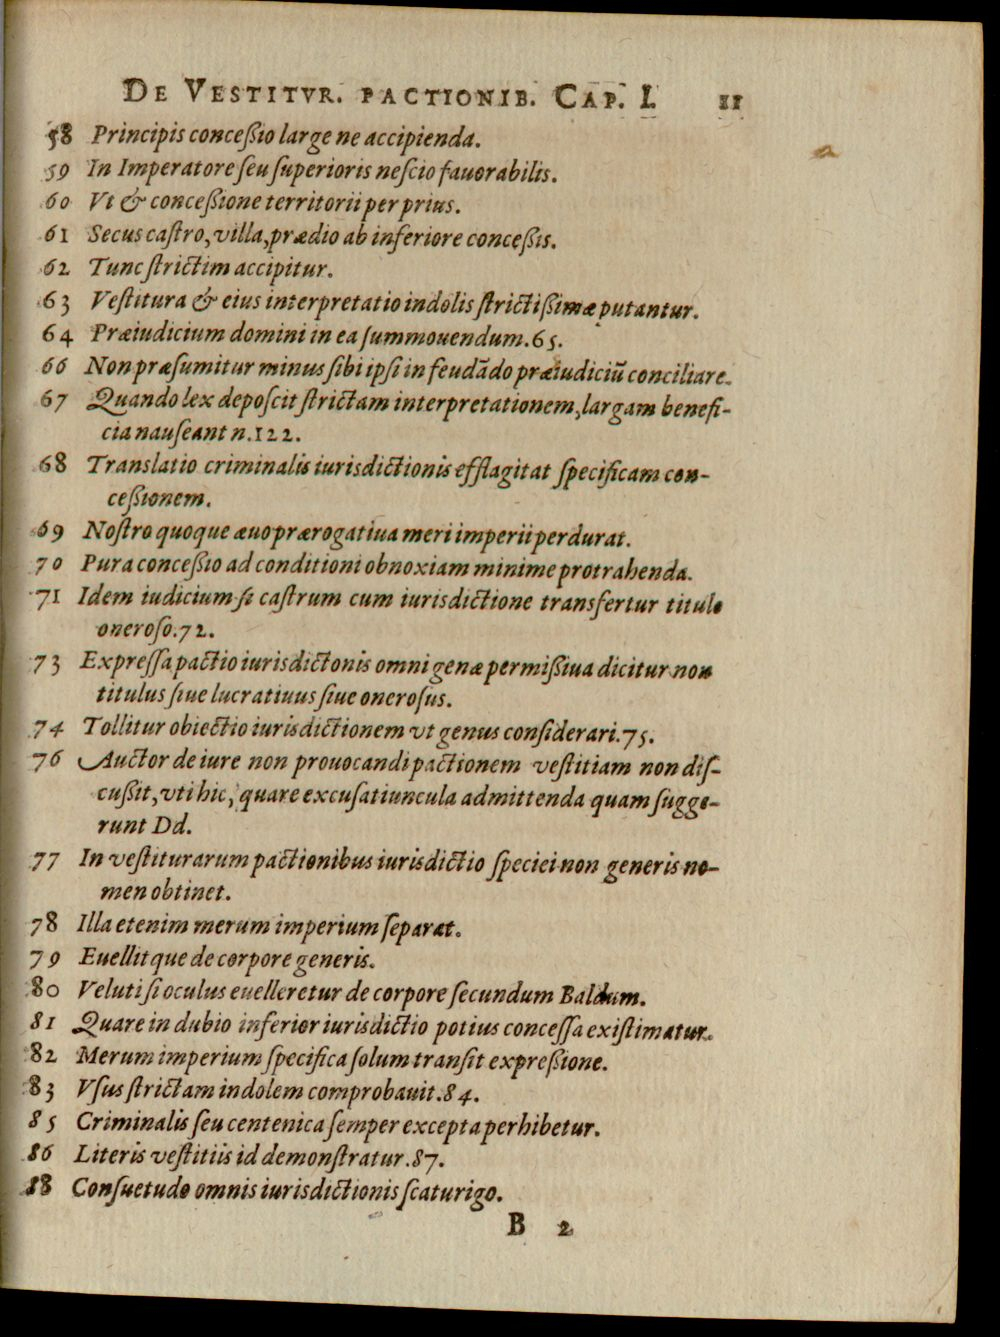 DE VESTITVR. PACTIONIB. CAP. I. 11
58 Principis conceßio large ne accipienda.
59 In Imperatore ſeu ſuperioris neſcio fauorabilis.
60 Vt & conceßione territorii per prius.
61 Secus caſtro, villa, prædio ab inferiore conceßis.
62 Tunc ſtrictim accipitur.
63 Veſtitura & eius interpretatio indolis ſtrictißimæ putantur.
64 Præiudicium domini in ea ſummouendum. 65.
66 Non præſumitur minus ſibi ipſi in feudādo præiudiciū conciliare.
67 Quando lex depoſcit ſtrictam interpretationem, largam benefi-
cia nauſeant n. 122.
68 Translatio criminalis iurisdictionis efflagitat ſpecificam con-
ceßionem.
69 Noſtro quoque æuo prærogatiua meri imperii perdurat.
70 Pura conceßio ad conditioni obnoxiam minime protrahenda.
71 Idem iudicium ſi caſtrum cum iurisdictione transfertur titulo
oneroſo. 72.
73 Expreſſa pactio iurisdictonis omnigenæ permißiua dicitur non
titulus ſiue lucratiuus ſiue oneroſus.
74 Tollitur obiectio iurisdictionem vt genus conſiderari. 75.
76 Auctor de iure non prouocandi pactionem veſtitiam non diſ-
cußit, vti hic, quare excuſatiuncula admittenda quam ſugge-
runt Dd.
77 In veſtiturarum pactionibus iurisdictio ſpeciei non generis no-
men obtinet.
78 Illa etenim merum imperium ſeparat.
79 Euellitque de corpore generis.
80 Veluti ſi oculus euelleretur de corpore ſecundum Baldum.
81 Quare in dubio inferior iurisdictio potius conceſſa exiſtimatur.
82 Merum imperium ſpecifica ſolum tranſit expreßione.
83 Vſus ſtrictam indolem comprobauit. 84.
85 Criminalis ſeu centenica ſemper excepta perhibetur.
86 Literis veſtitiis id demonſtratur. 87.
88 Conſuetudo omnis iurisdictionis ſcaturigo.
B 2